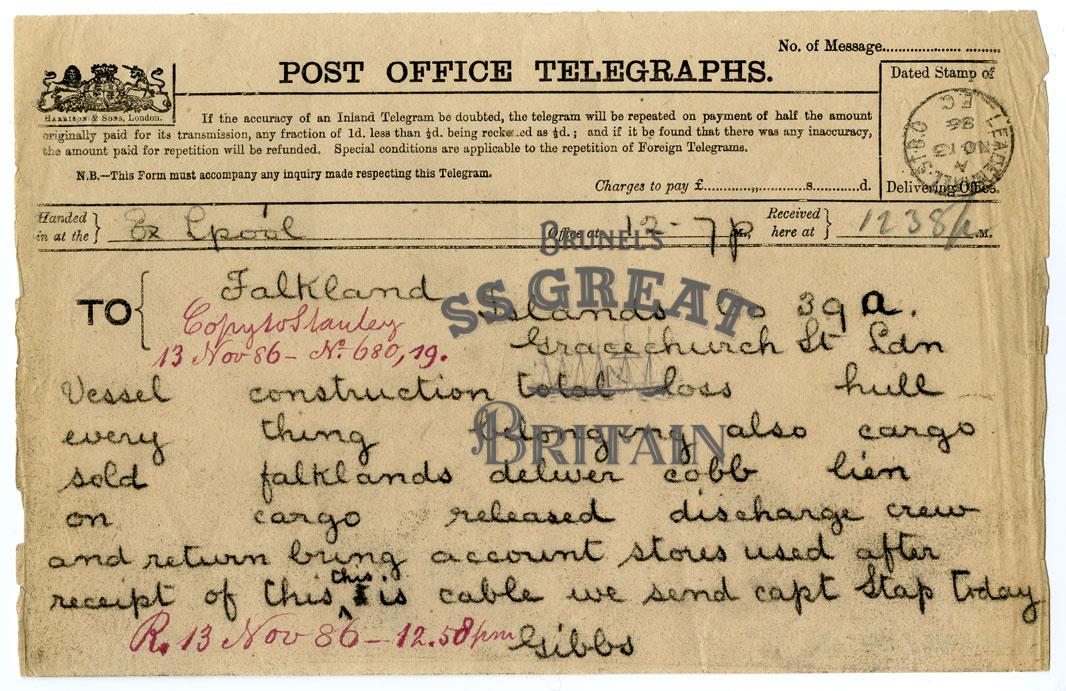 No. of Message
POST OFFICE TELEGRAPHS.
HARRISON & SONS, London.
If the accuracy of an Inland Telegram be doubted, the telegram will be repeated on payment of half the amount
originally paid for its transmission, any fraction of 1d. less than ½d. being reckoned as ½d.; and if it be found that there was any inaccuracy,
the amount paid for repetition will be refunded. Special conditions are applicable to the repetition of Foreign Telegrams.
N.B.—This Form must accompany any inquiry made respecting this Telegram.
Charges to pay £ s. d.
Dated Stamp of
LEADENHALL ST B.O
E.C
NO 13
86
Delivering Office.
Handed in at the } Ex Lpool Office at 12-7p M., Received here at } 1238/ .M.
BRUNEL'S
SS GREAT
BRITAIN
TO { Falkland Islands Co 39 a.
Copy to Stanley
Gracechurch St Ldn
13 Nov 86 - No. 680, 19.
Vessel construction total loss hull
every thing belonging also cargo
sold falklands deliver cobb lien
on cargo released discharge crew
and return bring account stores used after
receipt of this this is cable we send capt Stap today
R. 13 Nov 86 - 12.58pm Gibbs